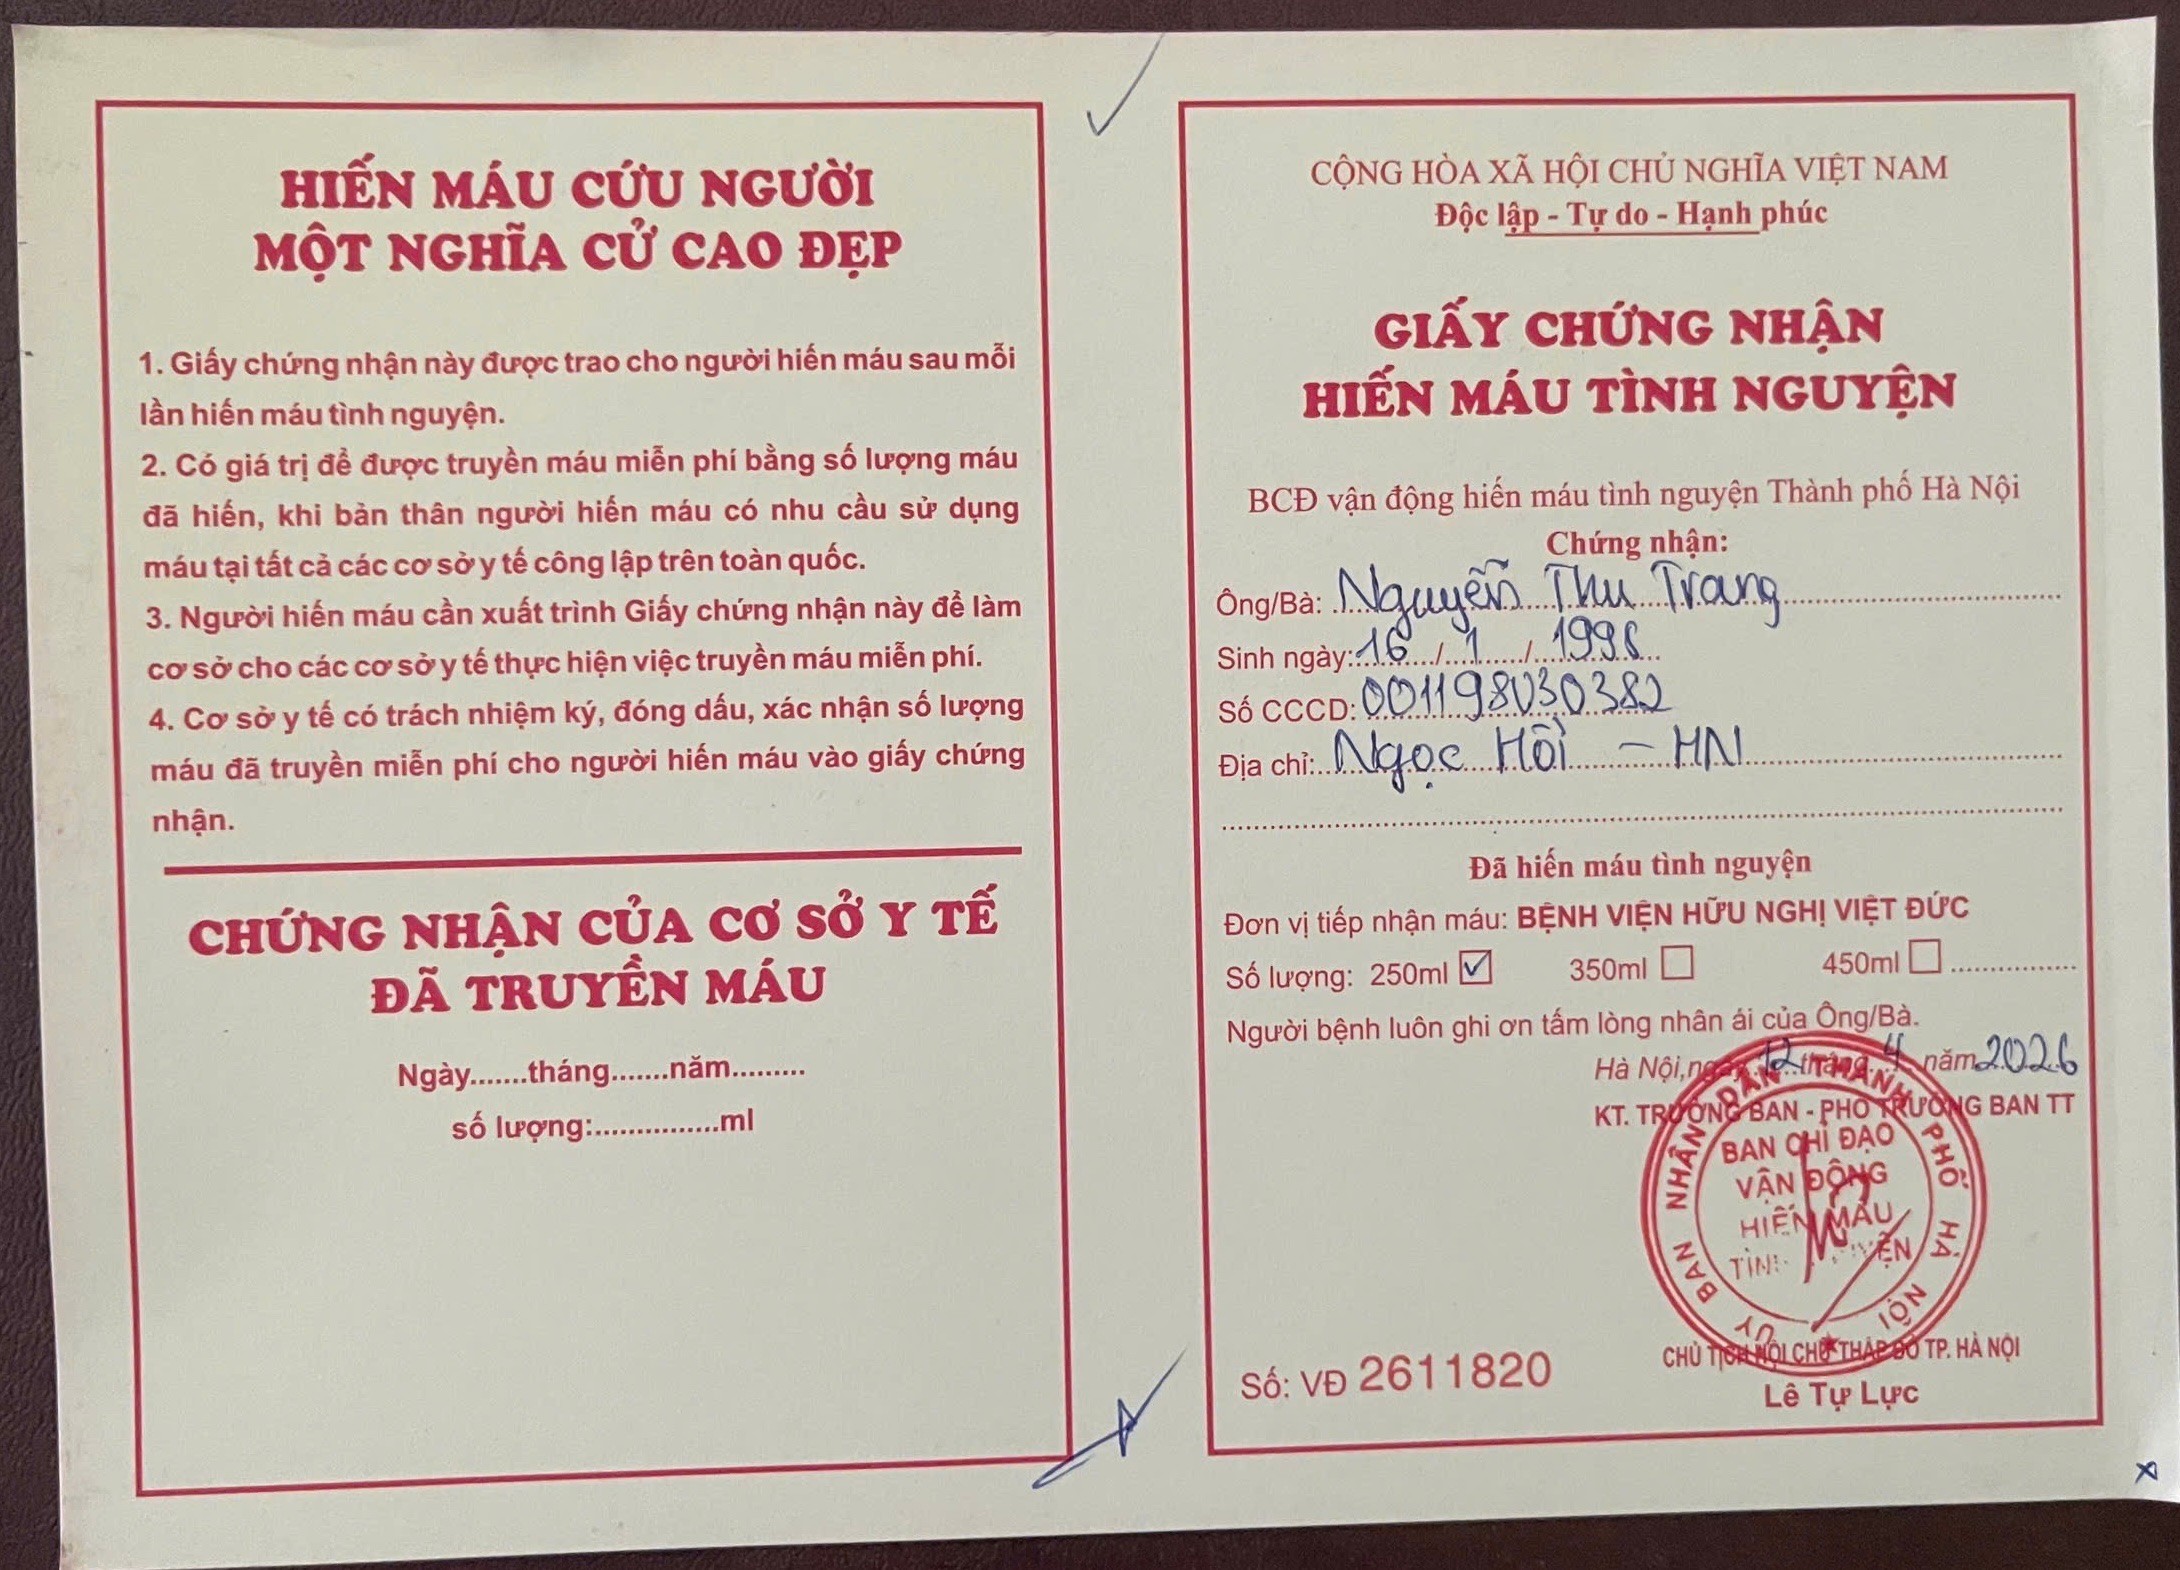 HIẾN MÁU CỨU NGƯỜI
MỘT NGHĨA CỬ CAO ĐẸP
1. Giấy chứng nhận này được trao cho người hiến máu sau mỗi
lần hiến máu tình nguyện.
2. Có giá trị để được truyền máu miễn phí bằng số lượng máu
đã hiến, khi bản thân người hiến máu có nhu cầu sử dụng
máu tại tất cả các cơ sở y tế công lập trên toàn quốc.
3. Người hiến máu cần xuất trình Giấy chứng nhận này để làm
cơ sở cho các cơ sở y tế thực hiện việc truyền máu miễn phí.
4. Cơ sở y tế có trách nhiệm ký, đóng dấu, xác nhận số lượng
máu đã truyền miễn phí cho người hiến máu vào giấy chứng
nhận.
CHỨNG NHẬN CỦA CƠ SỞ Y TẾ
ĐÃ TRUYỀN MÁU
Ngày.......tháng.......năm.........
số lượng:...............ml
CỘNG HÒA XÃ HỘI CHỦ NGHĨA VIỆT NAM
Độc lập - Tự do - Hạnh phúc
GIẤY CHỨNG NHẬN
HIẾN MÁU TÌNH NGUYỆN
BCĐ vận động hiến máu tình nguyện Thành phố Hà Nội
Chứng nhận:
Ông/Bà: Nguyễn Thu Trang
Sinh ngày: 16 / 1 / 1998
Số CCCD: 001198030382
Địa chỉ: Ngọc Hồi - HN
Đã hiến máu tình nguyện
Đơn vị tiếp nhận máu: BỆNH VIỆN HỮU NGHỊ VIỆT ĐỨC
Số lượng: 250ml ☑ 350ml ☐ 450ml ☐
Người bệnh luôn ghi ơn tấm lòng nhân ái của Ông/Bà.
Hà Nội, ngày 12 tháng 4 năm 2026
KT. TRƯỞNG BAN - PHÓ TRƯỞNG BAN TT
ỦY BAN NHÂN DÂN THÀNH PHỐ HÀ NỘI
BAN CHỈ ĐẠO
VẬN ĐỘNG
HIẾN MÁU
TÌNH NGUYỆN
CHỦ TỊCH HỘI CHỮ THẬP ĐỎ TP. HÀ NỘI
Lê Tự Lực
Số: VĐ 2611820